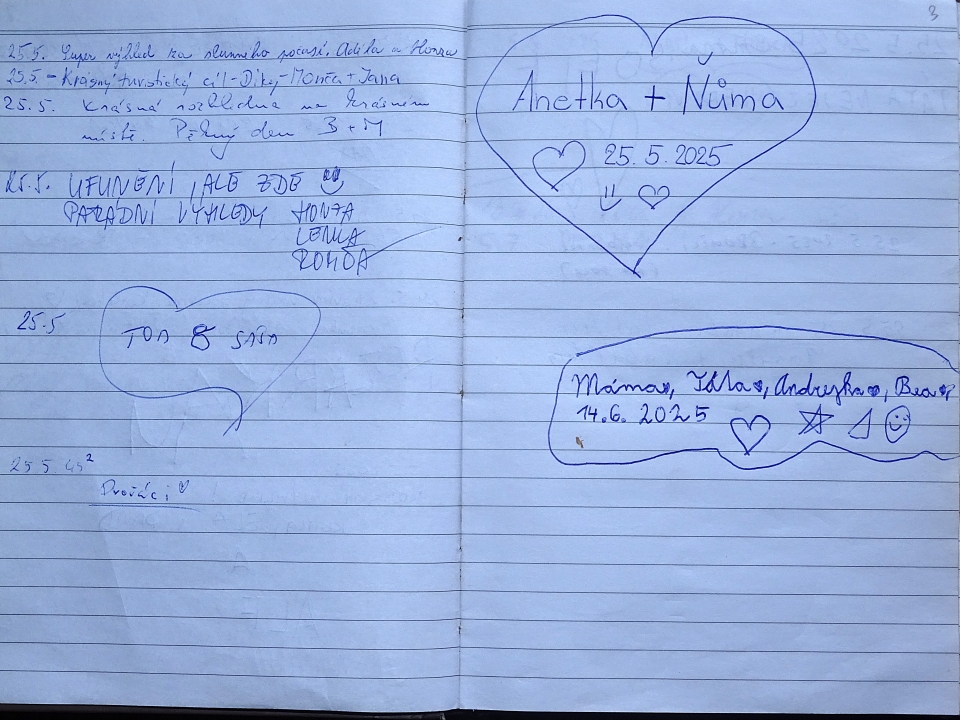 25.5. Super výhled za slunného počasí. Adéla a Honza
25.5. - Krásný turistický cíl - Díky - Monča + Jana
25.5. Krásná rozhledna na krásném
místě. Pěkný den B + M
25.5. UFUNĚNÍ, ALE ZDE
PARÁDNÍ VÝHLEDY HONZA
LENKA
25.5
TOM & SÁŠA
25.5.
Dvořáci
3
Anetka + Nůma
25. 5. 2025
Máma, Andrejka, Bea
14.6. 2025